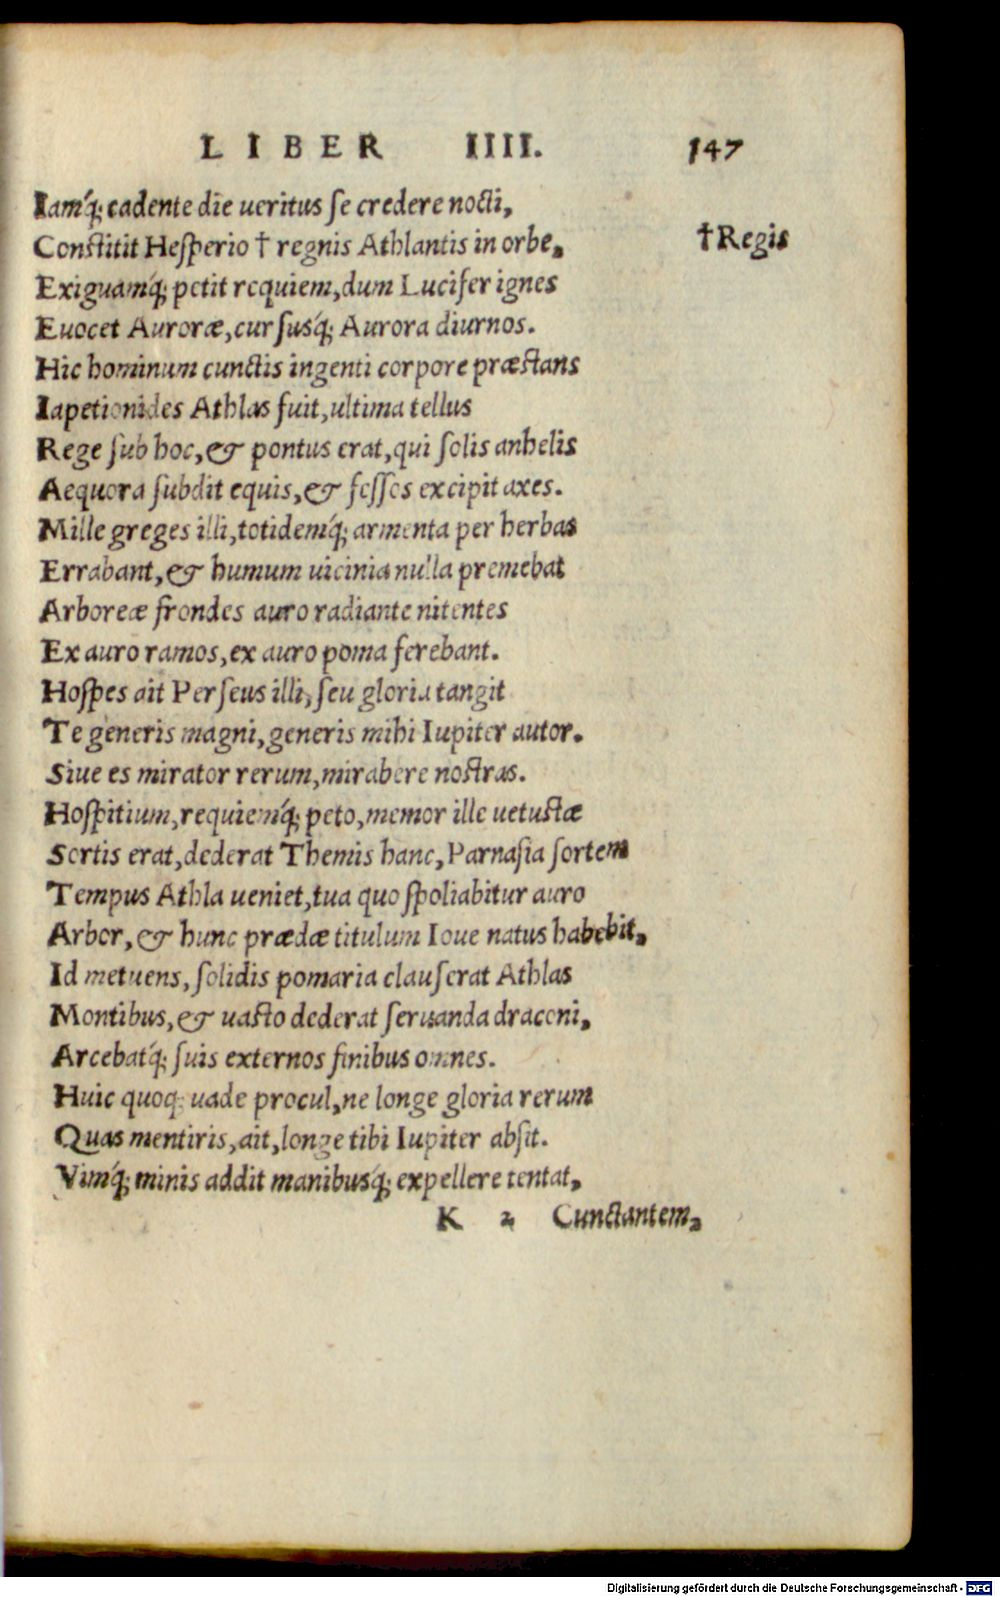 LIBER IIII. 147
Iamq́; cadente die ueritus se credere nocti,
Constitit Hesperio † regnis Athlantis in orbe, †Regis
Exiguamq́; petit requiem, dum Lucifer ignes
Euocet Auroræ, cursusq́; Aurora diurnos.
Hic hominum cunctis ingenti corpore præstans
Iapetionides Athlas fuit, ultima tellus
Rege sub hoc, & pontus erat, qui solis anhelis
Aequora subdit equis, & fessos excipit axes.
Mille greges illi, totidemq́; armenta per herbas
Errabant, & humum uicinia nulla premebat
Arboreæ frondes auro radiante nitentes
Ex auro ramos, ex auro poma ferebant.
Hospes ait Perseus illi, seu gloria tangit
Te generis magni, generis mihi Iupiter autor.
Siue es mirator rerum, mirabere nostras.
Hospitium, requiemq́; peto, memor ille uetustæ
Sortis erat, dederat Themis hanc, Parnasia sortem
Tempus Athla ueniet, tua quo spoliabitur auro
Arbor, & hunc prædæ titulum Ioue natus habebit,
Id metuens, solidis pomaria clauserat Athlas
Montibus, & uasto dederat seruanda draconi,
Arcebatq́; suis externos finibus omnes.
Huic quoq; uade procul, ne longe gloria rerum
Quas mentiris, ait, longe tibi Iupiter absit.
Vimq́; minis addit manibusq́; expellere tentat,
K 2 Cunctantem,
Digitalisierung gefördert durch die Deutsche Forschungsgemeinschaft - DFG